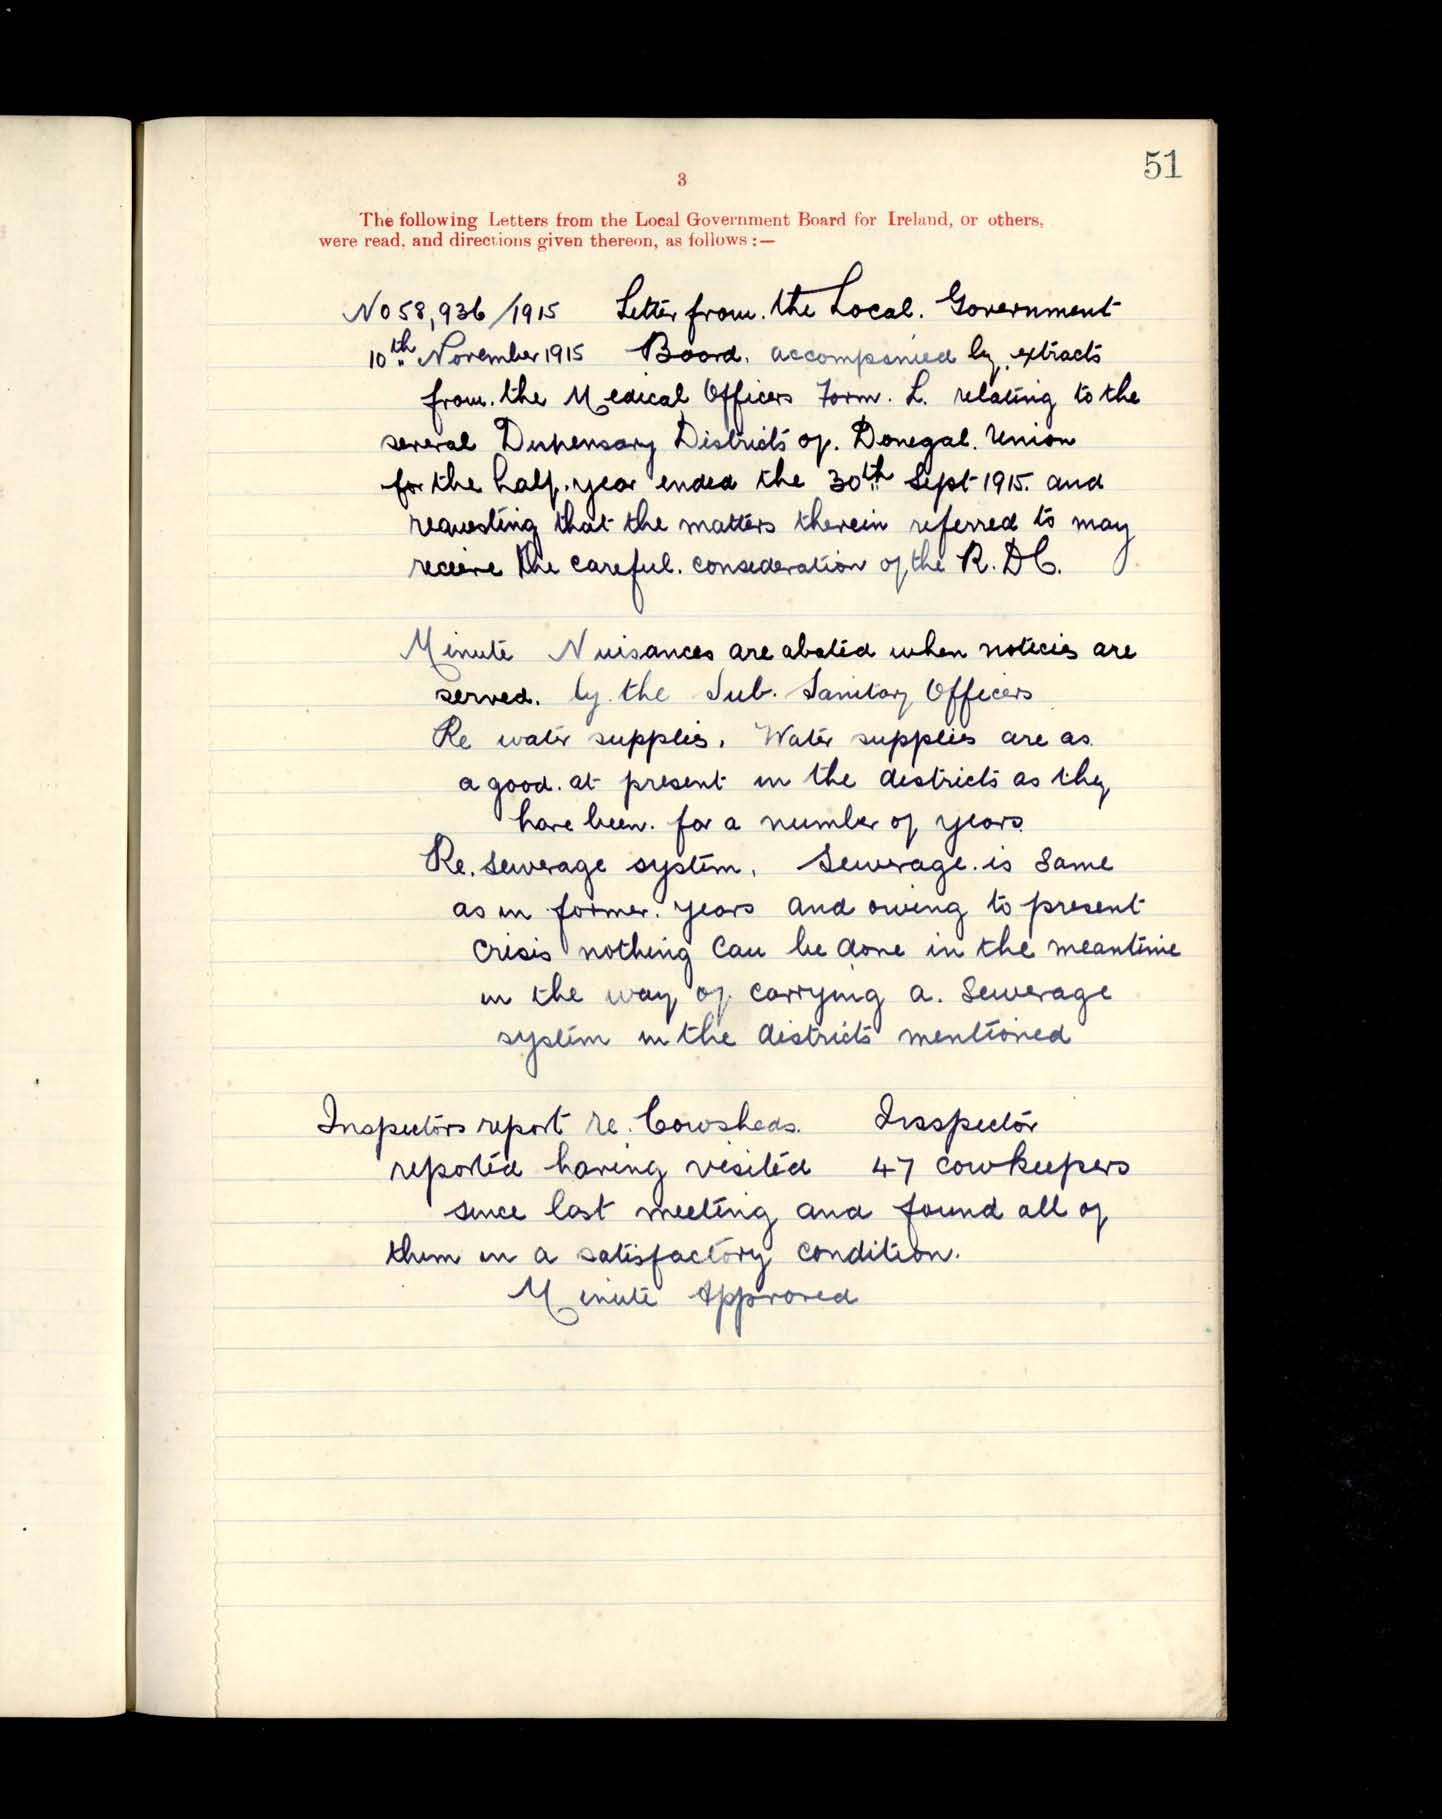 51
3
The following Letters from the Local Government Board for Ireland, or others,
were read, and directions given thereon, as follows :—
No 58,936/1915 Letter from. the Local. Government
10th November 1915 Board. accompanied by extracts
from. the Medical Officers Form. L. relating to the
several Dispensary Districts of. Donegal. Union
for the half. year ended the 30th Sept 1915. and
requesting that the matters therein referred to may
receive the careful. consideration of the R. D C.
Minute Nuisances are abated when notecies are
served. by the Sub. Sanitary Officers
Re water supplies. Water supplies are as
a good. at present in the districts as they
have been. for a number of years
Re. Sewerage system. Sewerage. is Same
as in former. years and owing to present
Crisis nothing Can be done in the meantime
in the way of. carrying a. Sewerage
system in the districts mentioned
Inspectors report re. Cowsheds. Insspector
reported having visited 47 cowkeepers
since last meeting and found all of
them in a satisfactory condition.
Minute Approved